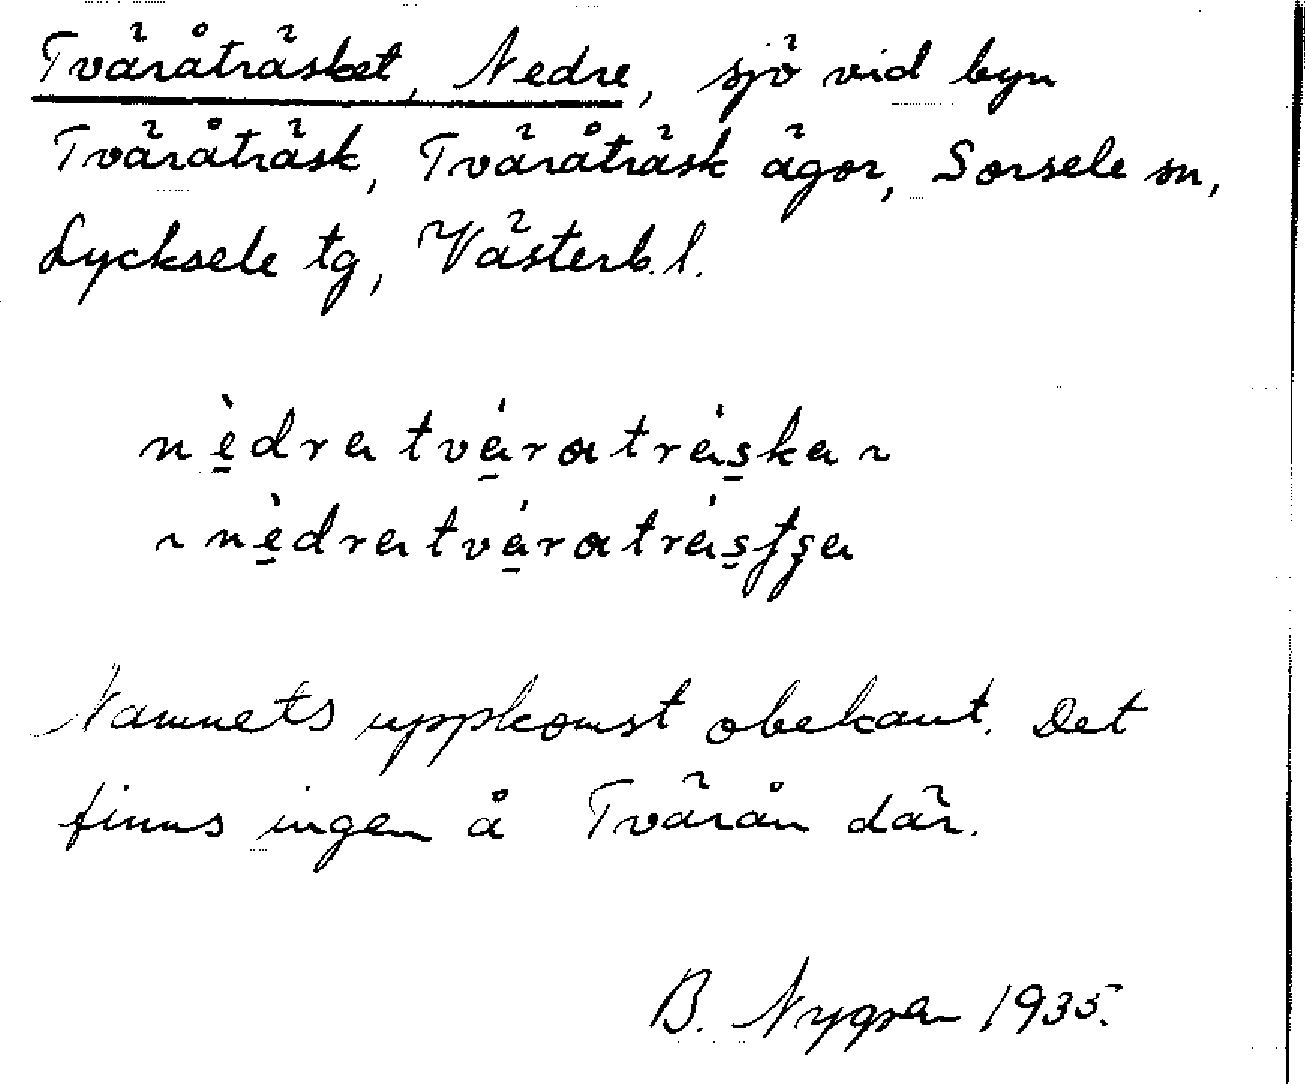 Tväråträsket, Nedre, sjö vid byn
Tväråträsk, Tväråträsk ägor, Sorsele sn,
Lycksele tg, Västerb. l.
nè̱dra tvá̱ratrás̱ka ~
~ nè̱dra tvá̱ratrás̱tʂa
Namnets uppkomst obekant. Det
finns ingen å Tvärån där.
B. Nygren 1935.